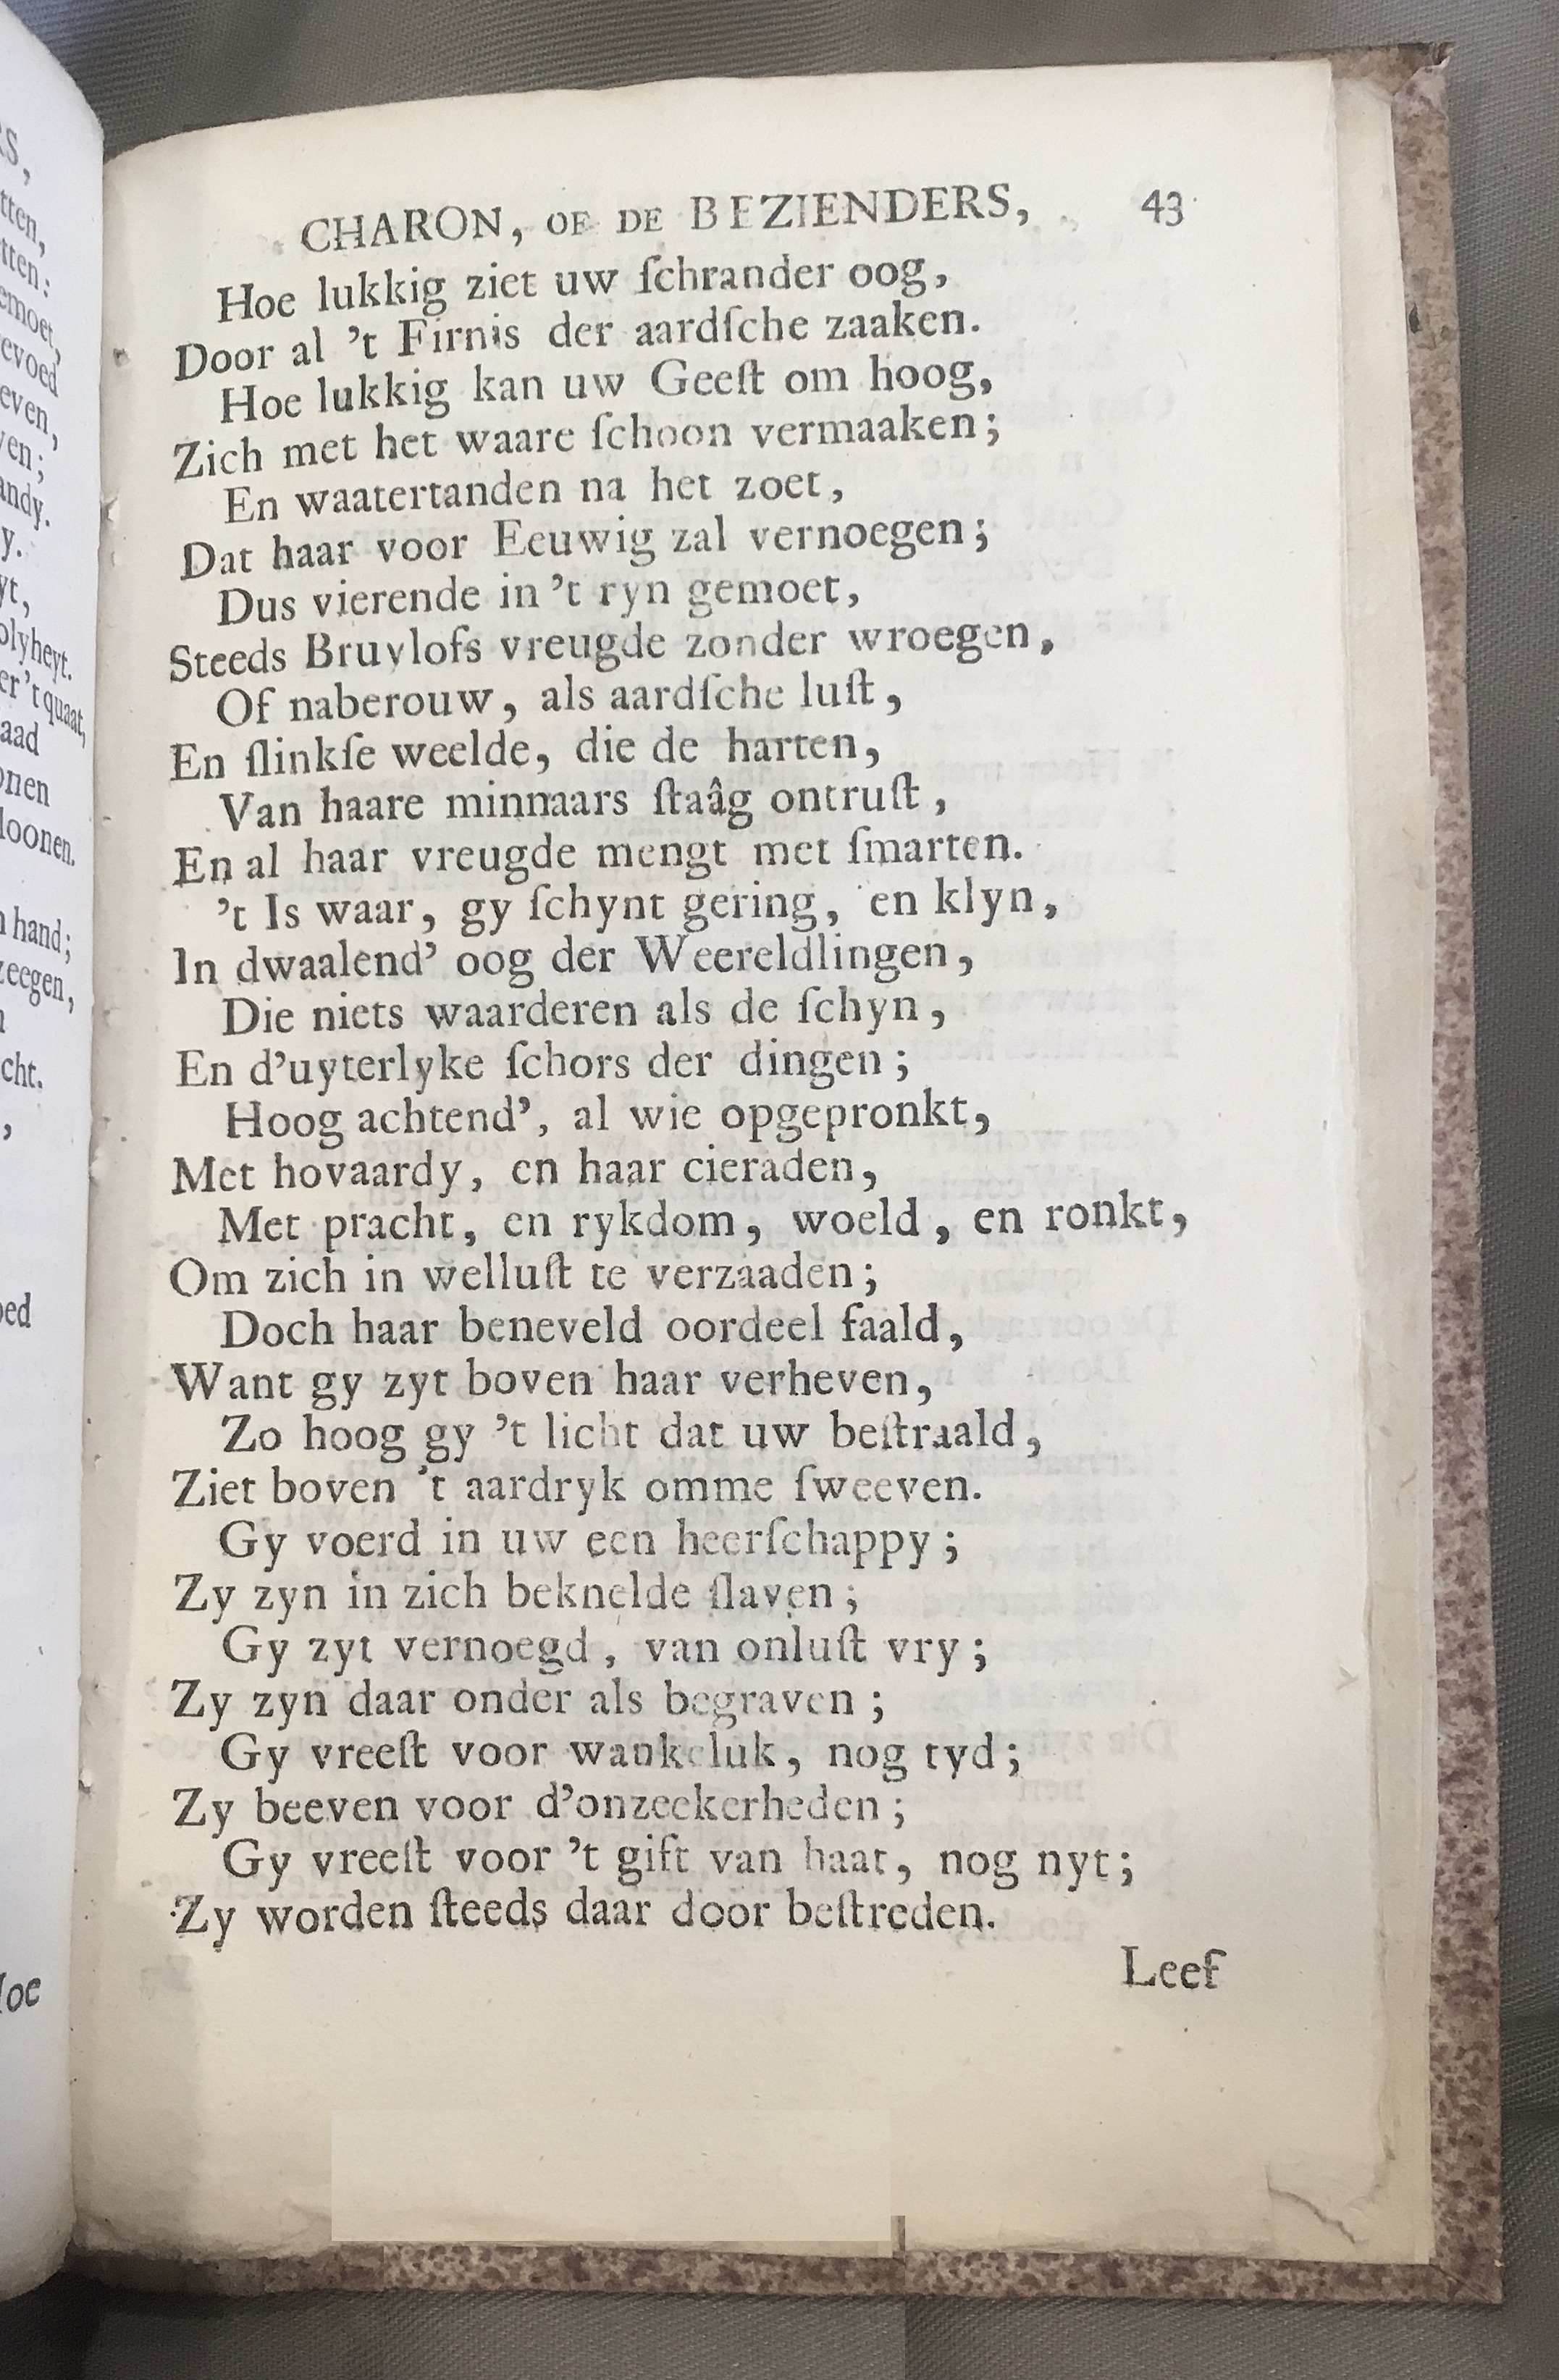 CHARON, OF DE BEZIENDERS, 43
Hoe lukkig ziet uw ſchrander oog,
Door al 't Firnis der aardſche zaaken.
Hoe lukkig kan uw Geeſt om hoog,
Zich met het waare ſchoon vermaaken;
En waatertanden na het zoet,
Dat haar voor Eeuwig zal vernoegen;
Dus vierende in 't ryn gemoet,
Steeds Bruylofs vreugde zonder wroegen,
Of naberouw, als aardſche luſt,
En ſlinkſe weelde, die de harten,
Van haare minnaars ſtaâg ontruſt,
En al haar vreugde mengt met ſmarten.
't Is waar, gy ſchynt gering, en klyn,
In dwaalend' oog der Weereldlingen,
Die niets waarderen als de ſchyn,
En d'uyterlyke ſchors der dingen;
Hoog achtend', al wie opgepronkt,
Met hovaardy, en haar cieraden,
Met pracht, en rykdom, woeld, en ronkt,
Om zich in welluſt te verzaaden;
Doch haar beneveld oordeel faald,
Want gy zyt boven haar verheven,
Zo hoog gy 't licht dat uw beſtraald,
Ziet boven 't aardryk omme ſweeven.
Gy voerd in uw een heerſchappy;
Zy zyn in zich beknelde ſlaven;
Gy zyt vernoegd, van onluſt vry;
Zy zyn daar onder als begraven;
Gy vreeſt voor wankeluk, nog tyd;
Zy beeven voor d'onzeekerheden;
Gy vreeſt voor 't gift van haat, nog nyt;
Zy worden ſteeds daar door beſtreden.
Leef